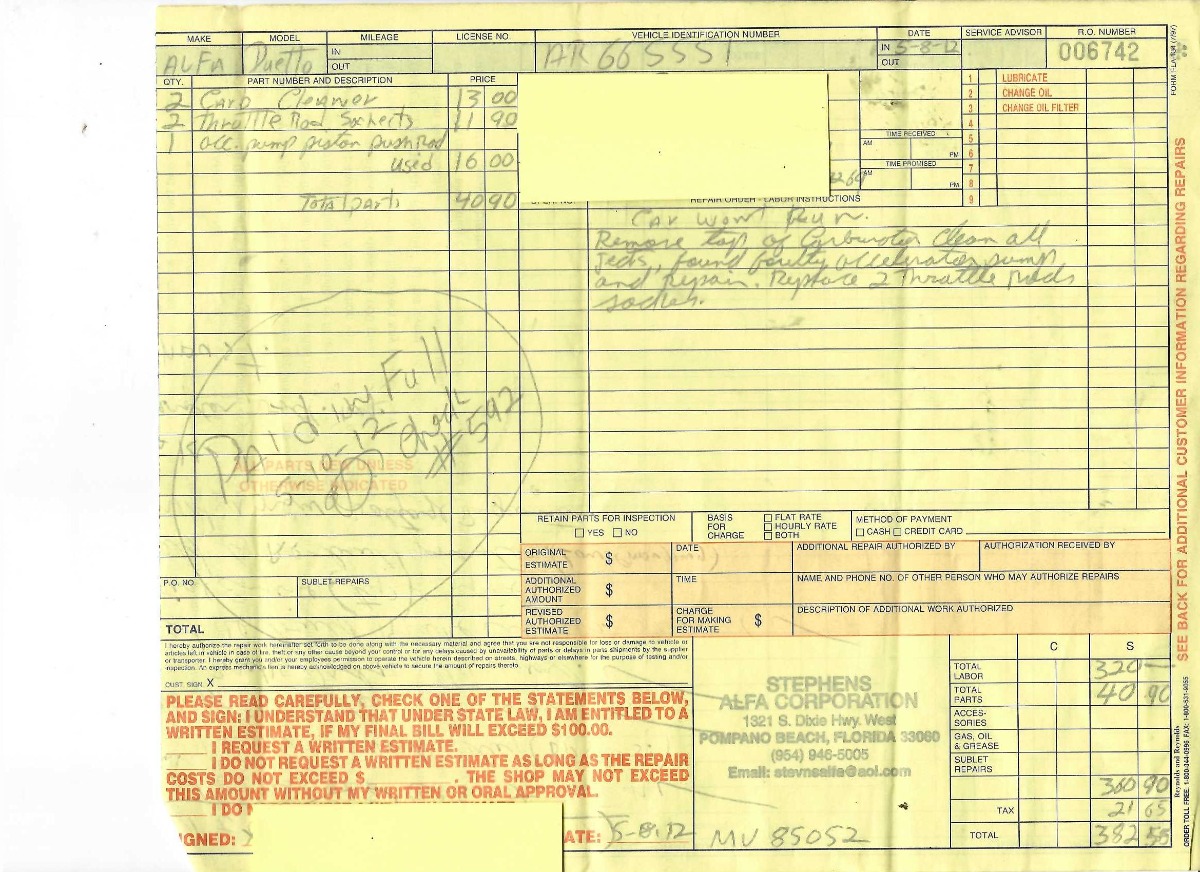 MAKE MODEL MILEAGE LICENSE NO. VEHICLE IDENTIFICATION NUMBER DATE SERVICE ADVISOR R.O. NUMBER
ALFA Duetto IN OUT AR 665551 IN 5-8-12 OUT 006742
QTY. PART NUMBER AND DESCRIPTION PRICE
2 Carb Cleaner 13 00
2 Throttle Rod Sockets 11 90
1 acc. pump piston push Rod
used 16 00
Total parts 40 90
1 LUBRICATE
2 CHANGE OIL
3 CHANGE OIL FILTER
4
5
6
7
8
9
TIME RECEIVED
AM PM
TIME PROMISED
AM PM
REPAIR ORDER - LABOR INSTRUCTIONS
Car wont Run.
Remove top of Carburator Clean all
Jets, found faulty accelerator pump
and repair. Replace 2 Throttle Rods
socket.
Paid in Full
check
#592
ALL PARTS NEW UNLESS
OTHERWISE INDICATED
RETAIN PARTS FOR INSPECTION
YES NO
BASIS FOR CHARGE
FLAT RATE
HOURLY RATE
BOTH
METHOD OF PAYMENT
CASH CREDIT CARD
ORIGINAL ESTIMATE $ DATE ADDITIONAL REPAIR AUTHORIZED BY AUTHORIZATION RECEIVED BY
ADDITIONAL AUTHORIZED AMOUNT $ TIME NAME AND PHONE NO. OF OTHER PERSON WHO MAY AUTHORIZE REPAIRS
REVISED AUTHORIZED ESTIMATE $ CHARGE FOR MAKING ESTIMATE $ DESCRIPTION OF ADDITIONAL WORK AUTHORIZED
P.O. NO. SUBLET REPAIRS
TOTAL
I hereby authorize the repair work hereinafter set forth to be done along with the necessary material and agree that you are not responsible for loss or damage to vehicle or
articles left in vehicle in case of fire, theft or any other cause beyond your control or for any delays caused by unavailability of parts or delays in parts shipments by the supplier
or transporter. I hereby grant you and/or your employees permission to operate the vehicle herein described on streets, highways or elsewhere for the purpose of testing and/or
inspection. An express mechanic's lien is hereby acknowledged on above vehicle to secure the amount of repairs thereto.
CUST. SIGN. X
PLEASE READ CAREFULLY, CHECK ONE OF THE STATEMENTS BELOW,
AND SIGN: I UNDERSTAND THAT UNDER STATE LAW, I AM ENTITLED TO A
WRITTEN ESTIMATE, IF MY FINAL BILL WILL EXCEED $100.00.
I REQUEST A WRITTEN ESTIMATE.
I DO NOT REQUEST A WRITTEN ESTIMATE AS LONG AS THE REPAIR
COSTS DO NOT EXCEED $ . THE SHOP MAY NOT EXCEED
THIS AMOUNT WITHOUT MY WRITTEN OR ORAL APPROVAL.
I DO
IGNED: ATE: 5-8-12
STEPHENS
ALFA CORPORATION
1321 S. Dixie Hwy. West
POMPANO BEACH, FLORIDA 33060
(954) 946-5005
Email: stevnsalfa@aol.com
MV 85052
C S
TOTAL LABOR 320 —
TOTAL PARTS 40 90
ACCESSORIES
GAS, OIL & GREASE
SUBLET REPAIRS
360 90
TAX 21 65
TOTAL 382 55
SEE BACK FOR ADDITIONAL CUSTOMER INFORMATION REGARDING REPAIRS
Reynolds and Reynolds